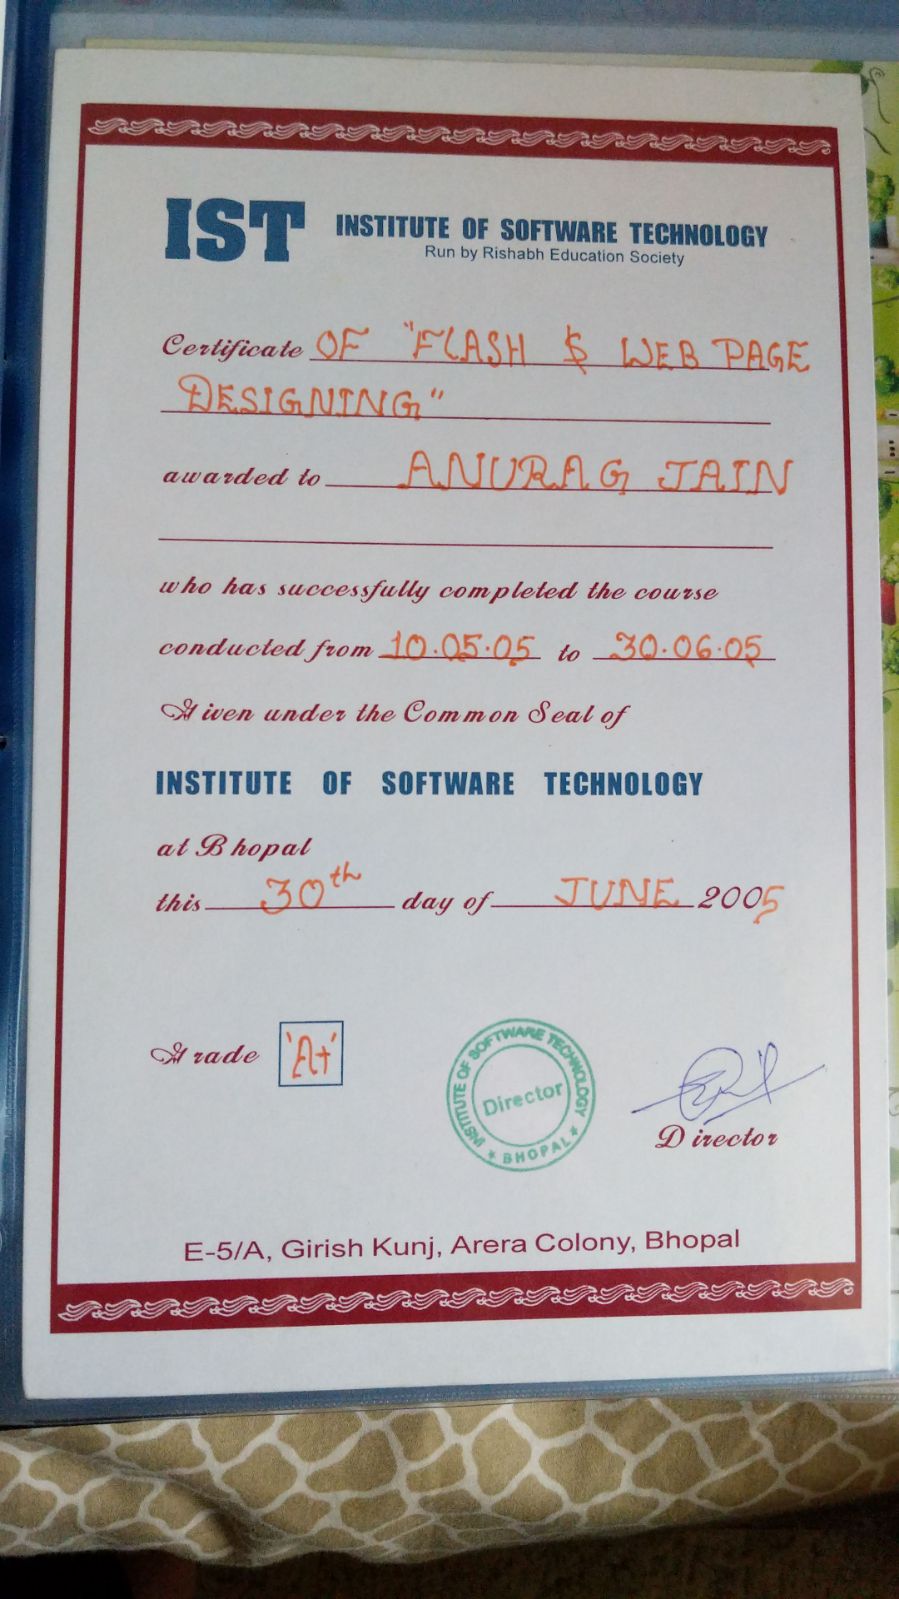 IST INSTITUTE OF SOFTWARE TECHNOLOGY
Run by Rishabh Education Society
Certificate OF "FLASH & WEB PAGE
DESIGNING"
awarded to ANURAG JAIN
who has successfully completed the course
conducted from 10.05.05 to 30.06.05
Given under the Common Seal of
INSTITUTE OF SOFTWARE TECHNOLOGY
at Bhopal
this 30th day of JUNE 2005
Grade 'A+'
INSTITUTE OF SOFTWARE TECHNOLOGY
Director
* BHOPAL *
Director
E-5/A, Girish Kunj, Arera Colony, Bhopal